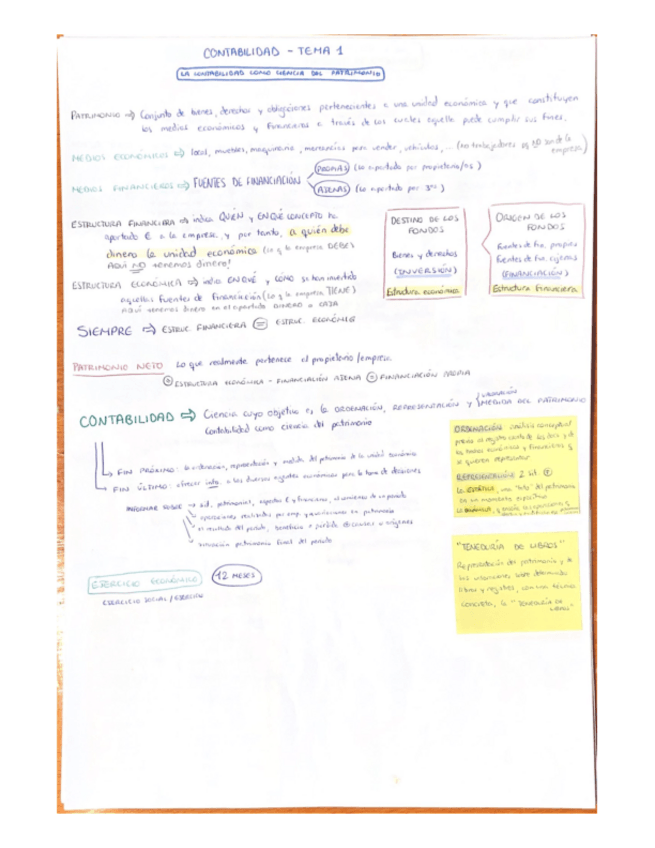 CONTABILIDAD - TEMA 1
LA CONTABILIDAD COMO CIENCIA DEL PATRIMONIO
PATRIMONIO → Conjunto de bienes, derechos y obligaciones pertenecientes a una unidad económica y que constituyen
los medios económicos y financieros a través de los cuales aquella puede cumplir sus fines.
MEDIOS ECONÓMICOS → local, muebles, maquinaria, mercancías para vender, vehículos, ... (los trabajadores NO son de la
empresa)
MEDIOS FINANCIEROS → FUENTES DE FINANCIACIÓN
PROPIAS (lo aportado por propietario/os)
AJENAS (lo aportado por 3os)
ESTRUCTURA FINANCIERA → indica QUIÉN y EN QUÉ CONCEPTO ha
aportado € a la empresa, y por tanto, a quién debe
dinero la unidad económica (lo q la empresa DEBE)
AQUÍ NO tenemos dinero!
ESTRUCTURA ECONÓMICA → indica EN QUÉ y CÓMO se han invertido
aquellas fuentes de financiación (lo q la empresa TIENE)
AQUÍ tenemos dinero en el apartado DINERO o CAJA
SIEMPRE → ESTRUC. FINANCIERA = ESTRUC. ECONÓMICA
DESTINO DE LOS
FONDOS
Bienes y derechos
(INVERSIÓN)
Estructura económica
ORIGEN DE LOS
FONDOS
Fuentes de fin. propias
Fuentes de fin. ajenas
(FINANCIACIÓN)
Estructura financiera
PATRIMONIO NETO Lo que realmente pertenece al propietario/empresa
= ESTRUCTURA ECONÓMICA - FINANCIACIÓN AJENA = FINANCIACIÓN PROPIA
CONTABILIDAD → Ciencia cuyo objetivo es la ORDENACIÓN, REPRESENTACIÓN y MEDIDA DEL PATRIMONIO
VALORACIÓN
Contabilidad como ciencia del patrimonio
FIN PRÓXIMO: la ordenación, representación y medida del patrimonio de la unidad económica
FIN ÚLTIMO: ofrecer info. a los diversos agentes económicos para la toma de decisiones
INFORMAR SOBRE → sit. patrimonial, aspectos € y financieros, al comienzo de un periodo
operaciones realizadas por emp. y variaciones en patrimonio
el resultado del periodo, beneficio o pérdida
situación patrimonio final del periodo
ORDENACIÓN: análisis conceptual
previo al registro contable
hechos económicos y financieros q
se quieren representar
REPRESENTACIÓN 2
la ESTÁTICA, una "foto" del patrimonio
en un momento específico
la DINÁMICA,
"TENEDURÍA DE LIBROS"
Representación del patrimonio y de
las variaciones sobre determinados
libros y registros, con una técnica
concreta, la "TENEDURÍA DE
LIBROS"
EJERCICIO ECONÓMICO 12 MESES
EJERCICIO SOCIAL / EJERCICIO